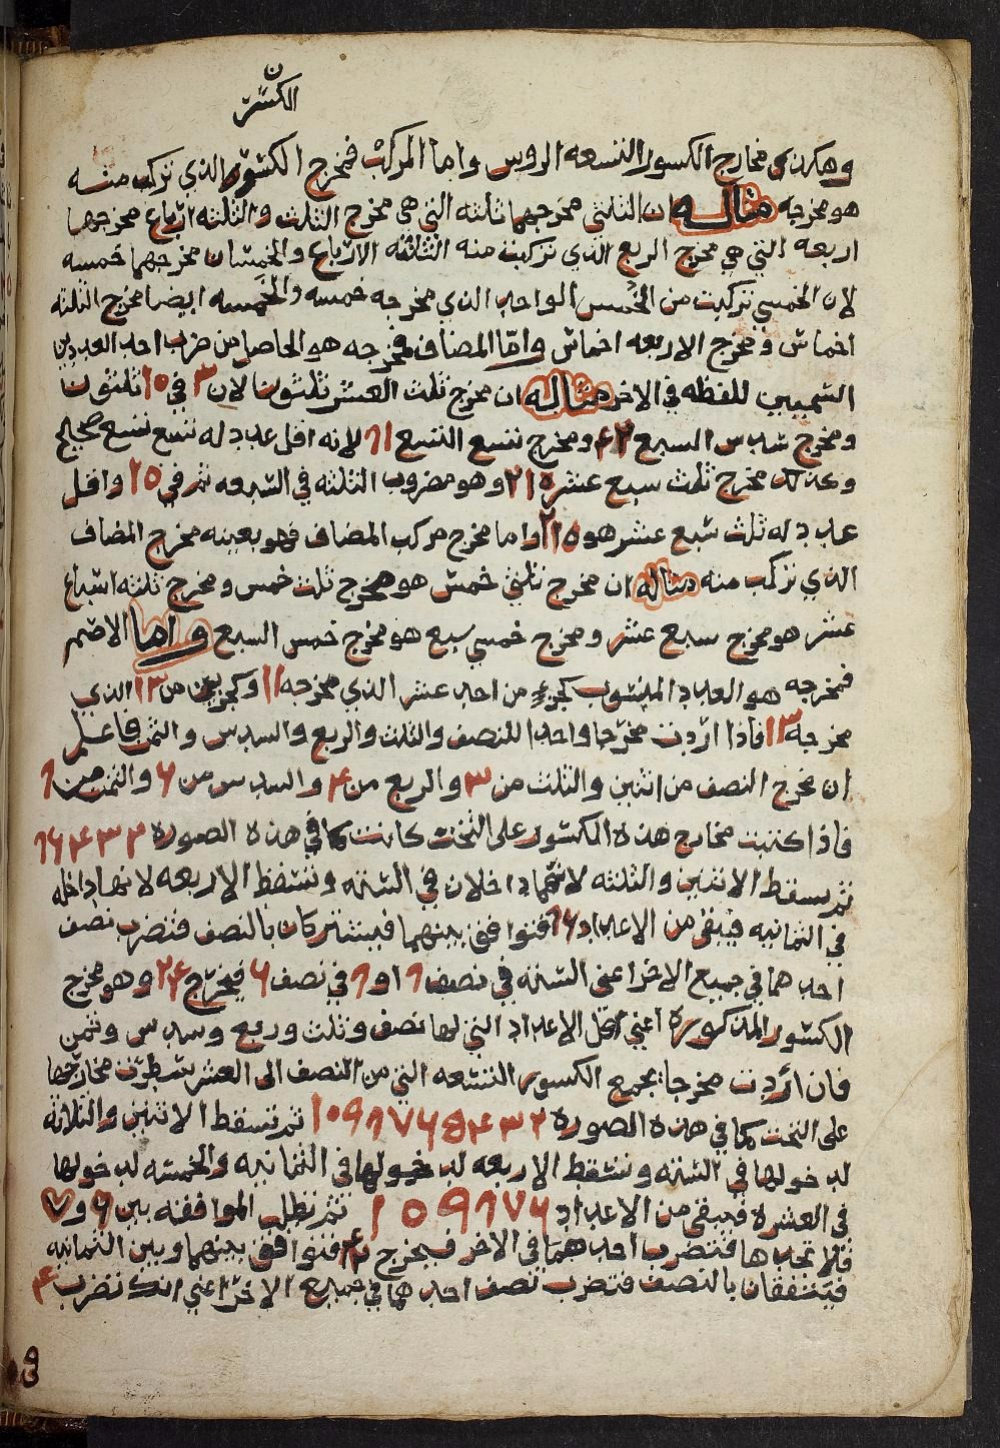 الكسر
وهكذى مخارج الكسور التسعه الروس واما المركب فمخرج الكسور الذي تركب منه
هو مخرجه مثاله ان الثلثي مخرجهما ثلثه التي هي مخرج الثلث والثلثه ارباع مخرجها
اربعه التي هي مخرج الربع الذي تركبت منه الثلاثه الارباع والخمسان مخرجهما خمسه
لان الخمسي تركبت من الخمس الواحد الذي مخرجه خمسه والخمسه ايضا مخرج الثلثه
اخماس ومخرج الاربعه اخماس واما المضاف فمخرجه هو الحاصل من ضرب احد العددين
السميين للفظه في الاخر مثاله ان مخرج ثلث العشر ثلثون لان ٣ في ١٥ ثلثون
ومخرج سدس السبع ٤٢ ومخرج تسع التسع ٨١ لانه اقل عدد له تسع تسع صحيح
وكذلك مخرج ثلث سبع عشر ٢١٥ وهو مضروب الثلثه في السبعه ثم في ١٥ واقل
عدد له ثلث سبع عشر هو ٢١٥ واما مخرج مركب المضاف فهو بعينه مخرج المضاف
الذي تركب منه مثاله ان مخرج ثلثي خمس هو مخرج ثلث خمس ومخرج ثلثه اسباع
عشر هو مخرج سبع عشر ومخرج خمسي سبع هو مخرج خمس السبع واما الاصم
فمخرجه هو العدد المنسوب كجزء من احد عشر الذي مخرجه ١١ وكجزين من ١٣ الذي
مخرجه ١٣ فاذا اردت مخرجا واحدا للنصف والثلث والربع والسدس والثمن فاعلم
ان مخرج النصف من اثنين والثلث من ٣ والربع من ٤ والسدس من ٦ والثمن من ٨
فاذا كتبت مخارج هذه الكسور على التخت كانت كما في هذه الصوره ٢ ٣ ٤ ٦ ٨
ثم يسقط الاثنين والثلثه لانهما داخلان في السته وتسقط الاربعه لانها داخله
في الثمانيه فيبقى من الاعداد ٨ ٦ فتوافق بينهما فيشتركان بالنصف فتضرب نصف
احدهما في جميع الاخر اعني السته في نصف ٨ او ٨ في نصف ٦ فيخرج ٢٤ وهو مخرج
الكسور المذكوره اعني اقل الاعداد التي لها نصف وثلث وربع وسدس وثمن
فان اردت مخرجا يجمع الكسور التسعه التي من النصف الى العشر سطرت مخارجها
على التخت كما في هذه الصوره ٢ ٣ ٤ ٥ ٦ ٧ ٨ ٩ ١٥ ثم تسقط الاثنين والثلاثه
لدخولها في السته وتسقط الاربعه لدخولها في الثمانيه والخمسه لدخولها
في العشره فيبقى من الاعداد ٦ ٧ ٨ ٩ ١٥ ثم تطلب الموافقه بين ٦ و ٧
فلا تجدها فتضرب احدهما في الاخر فيخرج ٤٢ فتوافق بينهما وبين الثمانيه
فيتفقان بالنصف فتضرب نصف احدهما في جميع الاخر اعني انك تضرب ٤